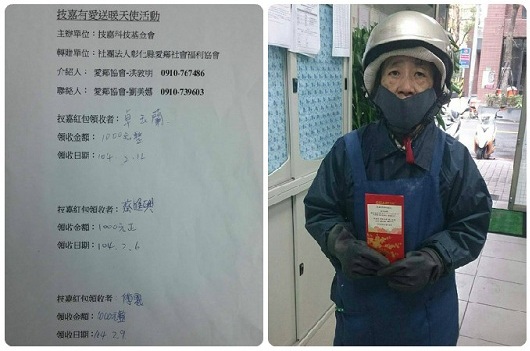 技嘉有愛送暖天使活動
主辦單位：技嘉科技基金會
轉贈單位：社團法人彰化縣愛鄰社會福利協會
介紹人：愛鄰協會-洪敦明 0910-767486
聯絡人：愛鄰協會-劉美嬌 0910-739603
技嘉紅包領收者：卓玉蘭
領收金額：1000元整
領收日期：104. 2. 12
技嘉紅包領收者：
領收金額：1000元正
領收日期：104. 2. 6
技嘉紅包領收者：
領收金額：1000元整
領收日期：104 2. 9